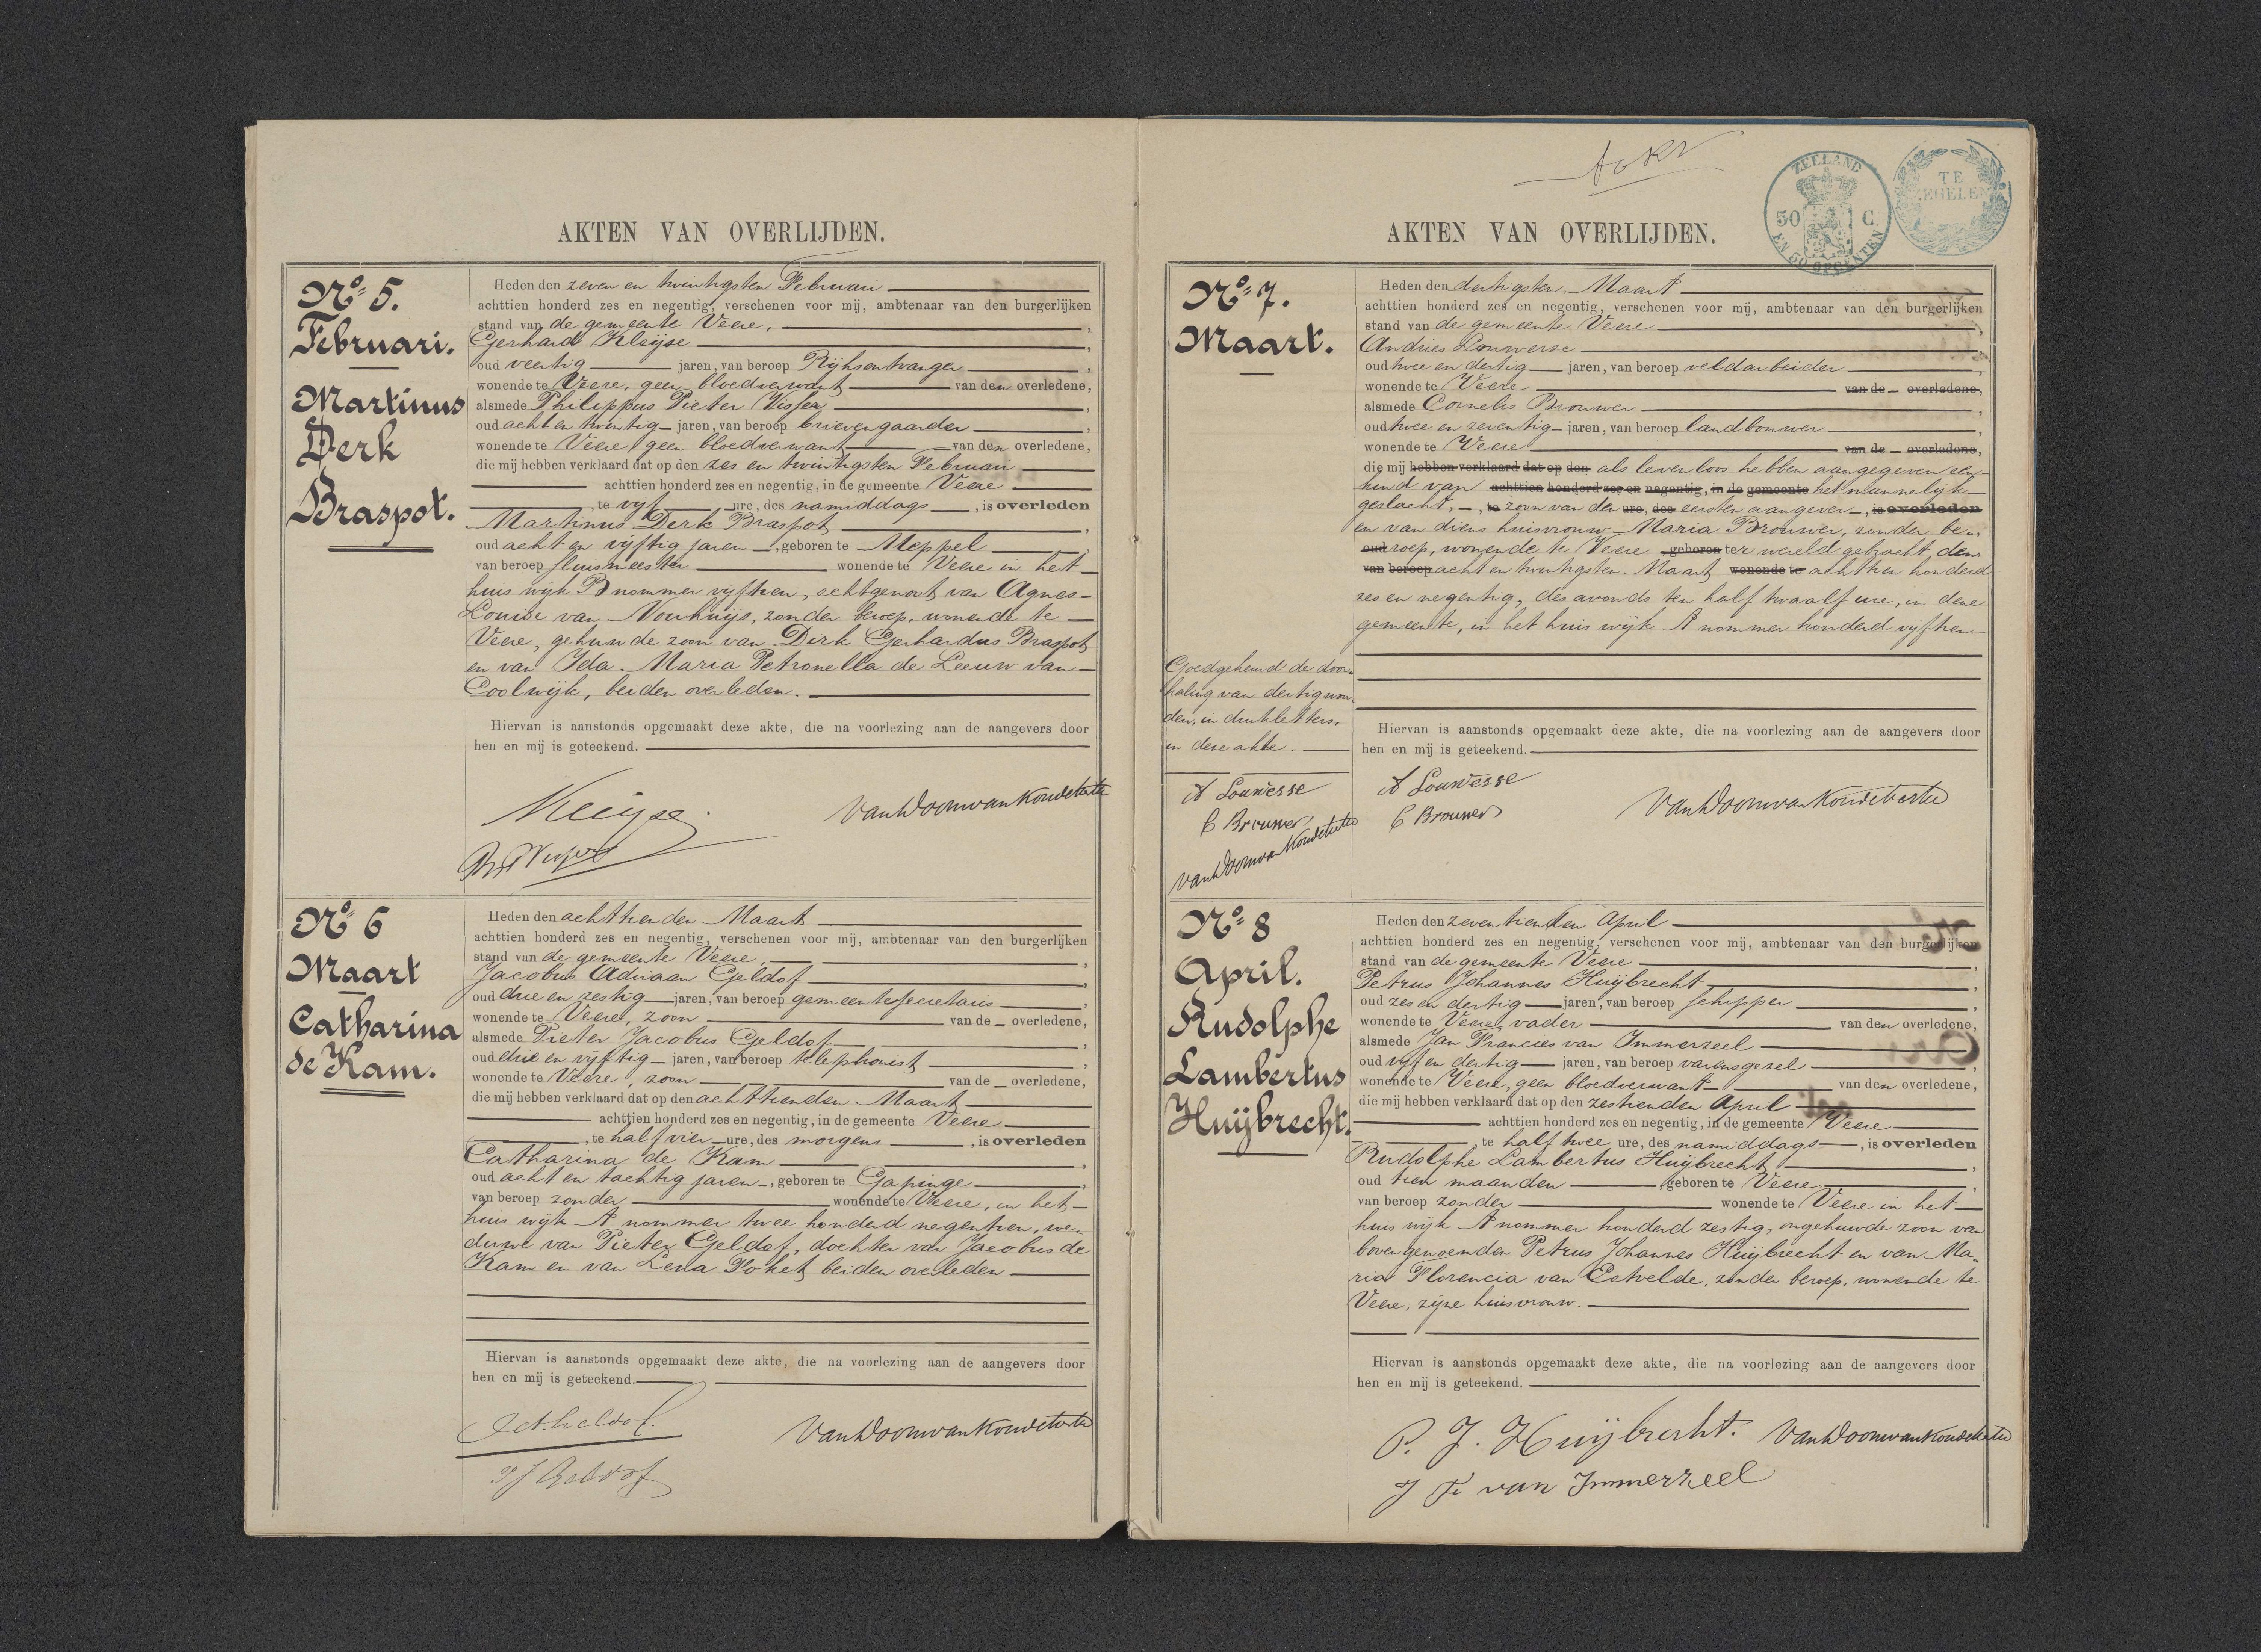 AKTEN VAN OVERLIJDEN.
No 5.
Februari.
Martinus
Derk
Braspot.
Heden den zeven en twintigsten Februari
achttien honderd zes en negentig, verschenen voor mij, ambtenaar van den burgerlijken
stand van de gemeente Veere,
Gerhard Kleijse
oud veertig jaren, van beroep Rijksontvanger
wonende te Veere, geen bloedverwant van den overledene,
alsmede Philippus Pieter Visser
oud acht en twintig jaren, van beroep brievengaarder
wonende te Veere, geen bloedverwant van den overledene,
die mij hebben verklaard dat op den zes en twintigsten Februari
achttien honderd zes en negentig, in de gemeente Veere
, te vijf ure, des namiddags, is overleden
Martinus Derk Braspot,
oud acht en vijftig jaren, geboren te Meppel
van beroep sluismeester wonende te Veere in het
huis wijk B nommer vijftien, echtgenoot van Agnes
Louise van Nouhuijs, zonder beroep, wonende te
Veere, gehuwde zoon van Derk Gerhardus Braspot
en van Ida Maria Petronella de Leeuw van
Coolwijk, beiden overleden.
Hiervan is aanstonds opgemaakt deze akte, die na voorlezing aan de aangevers door
hen en mij is geteekend.
Kleijse
No 6
Maart
Catharina
de Kam.
Heden den achttienden Maart
achttien honderd zes en negentig, verschenen voor mij, ambtenaar van den burgerlijken
stand van de gemeente Veere,
Jacobus Adriaan Geldof
oud drie en zestig jaren, van beroep gemeentesecretaris
wonende te Veere, zoon van de overledene,
alsmede Pieter Jacobus Geldof
oud drie en vijftig jaren, van beroep telephonist
wonende te Veere, zoon van de overledene,
die mij hebben verklaard dat op den achttienden Maart
achttien honderd zes en negentig, in de gemeente Veere
, te half vier ure, des morgens, is overleden
Catharina de Kam
oud acht en tachtig jaren, geboren te Gapinge
van beroep zonder wonende te Veere, in het
huis wijk A nommer twee honderd negentien, we-
duwe van Pieter Geldof, dochter van Jacobus de
Kam en van Lena Poket, beiden overleden
Hiervan is aanstonds opgemaakt deze akte, die na voorlezing aan de aangevers door
hen en mij is geteekend.
PJ Geldof
AKTEN VAN OVERLIJDEN.
ZEELAND
50 C.
EN 50 OPCENTEN
TE
ZEGELEN
No 7.
Maart.
Heden den dertigsten Maart
achttien honderd zes en negentig, verschenen voor mij, ambtenaar van den burgerlijken
stand van de gemeente Veere
Andries Louwerse
oud twee en dertig jaren, van beroep veldarbeider
wonende te Veere van de overledene,
alsmede Cornelis Brouwer
oud twee en zeventig jaren, van beroep landbouwer
wonende te Veere van de overledene,
die mij hebben verklaard dat op den als levenloos hebben aangegeven een
kind van achttien honderd zes en negentig, in de gemeente het mannelijk
geslacht, te zoon van den ure, des eersten aangever, is overleden
en van diens huisvrouw Maria Brouwer, zonder be-
oud roep, wonende te Veere geboren ter wereld gebracht, den
van beroep acht en twintigsten Maart wonende te achttien honderd
zes en negentig, des avonds ten half twaalf ure, in deze
gemeente, in het huis wijk A nommer honderd vijftien
Goedgekeurd de door-
haling van dertig woor-
den, in drukletters,
in deze akte.
Hiervan is aanstonds opgemaakt deze akte, die na voorlezing aan de aangevers door
hen en mij is geteekend.
A Louwerse
C Brouwer
A Louwerse
C Brouwer
No 8
April.
Rudolphe
Lambertus
Huijbrecht.
Heden den zeventienden April
achttien honderd zes en negentig, verschenen voor mij, ambtenaar van den burgerlijken
stand van de gemeente Veere
Petrus Johannes Huijbrecht
oud zes en dertig jaren, van beroep schipper
wonende te Veere, vader van den overledene,
alsmede Jan Francies van Immerzeel
oud vijf en dertig jaren, van beroep varensgezel
wonende te Veere, geen bloedverwant van den overledene,
die mij hebben verklaard dat op den zestienden April
achttien honderd zes en negentig, in de gemeente Veere
, te half twee ure, des namiddags, is overleden
Rudolphe Lambertus Huijbrecht
oud tien maanden geboren te Veere
van beroep zonder wonende te Veere in het
huis wijk A nommer honderd zestig, ongehuwde zoon van
bovengenoemden Petrus Johannes Huijbrecht en van Ma-
ria Florencia van Eetvelde, zonder beroep, wonende te
Veere, zijne huisvrouw.
Hiervan is aanstonds opgemaakt deze akte, die na voorlezing aan de aangevers door
hen en mij is geteekend.
P. J. Huijbrecht.
J F van Immerzeel